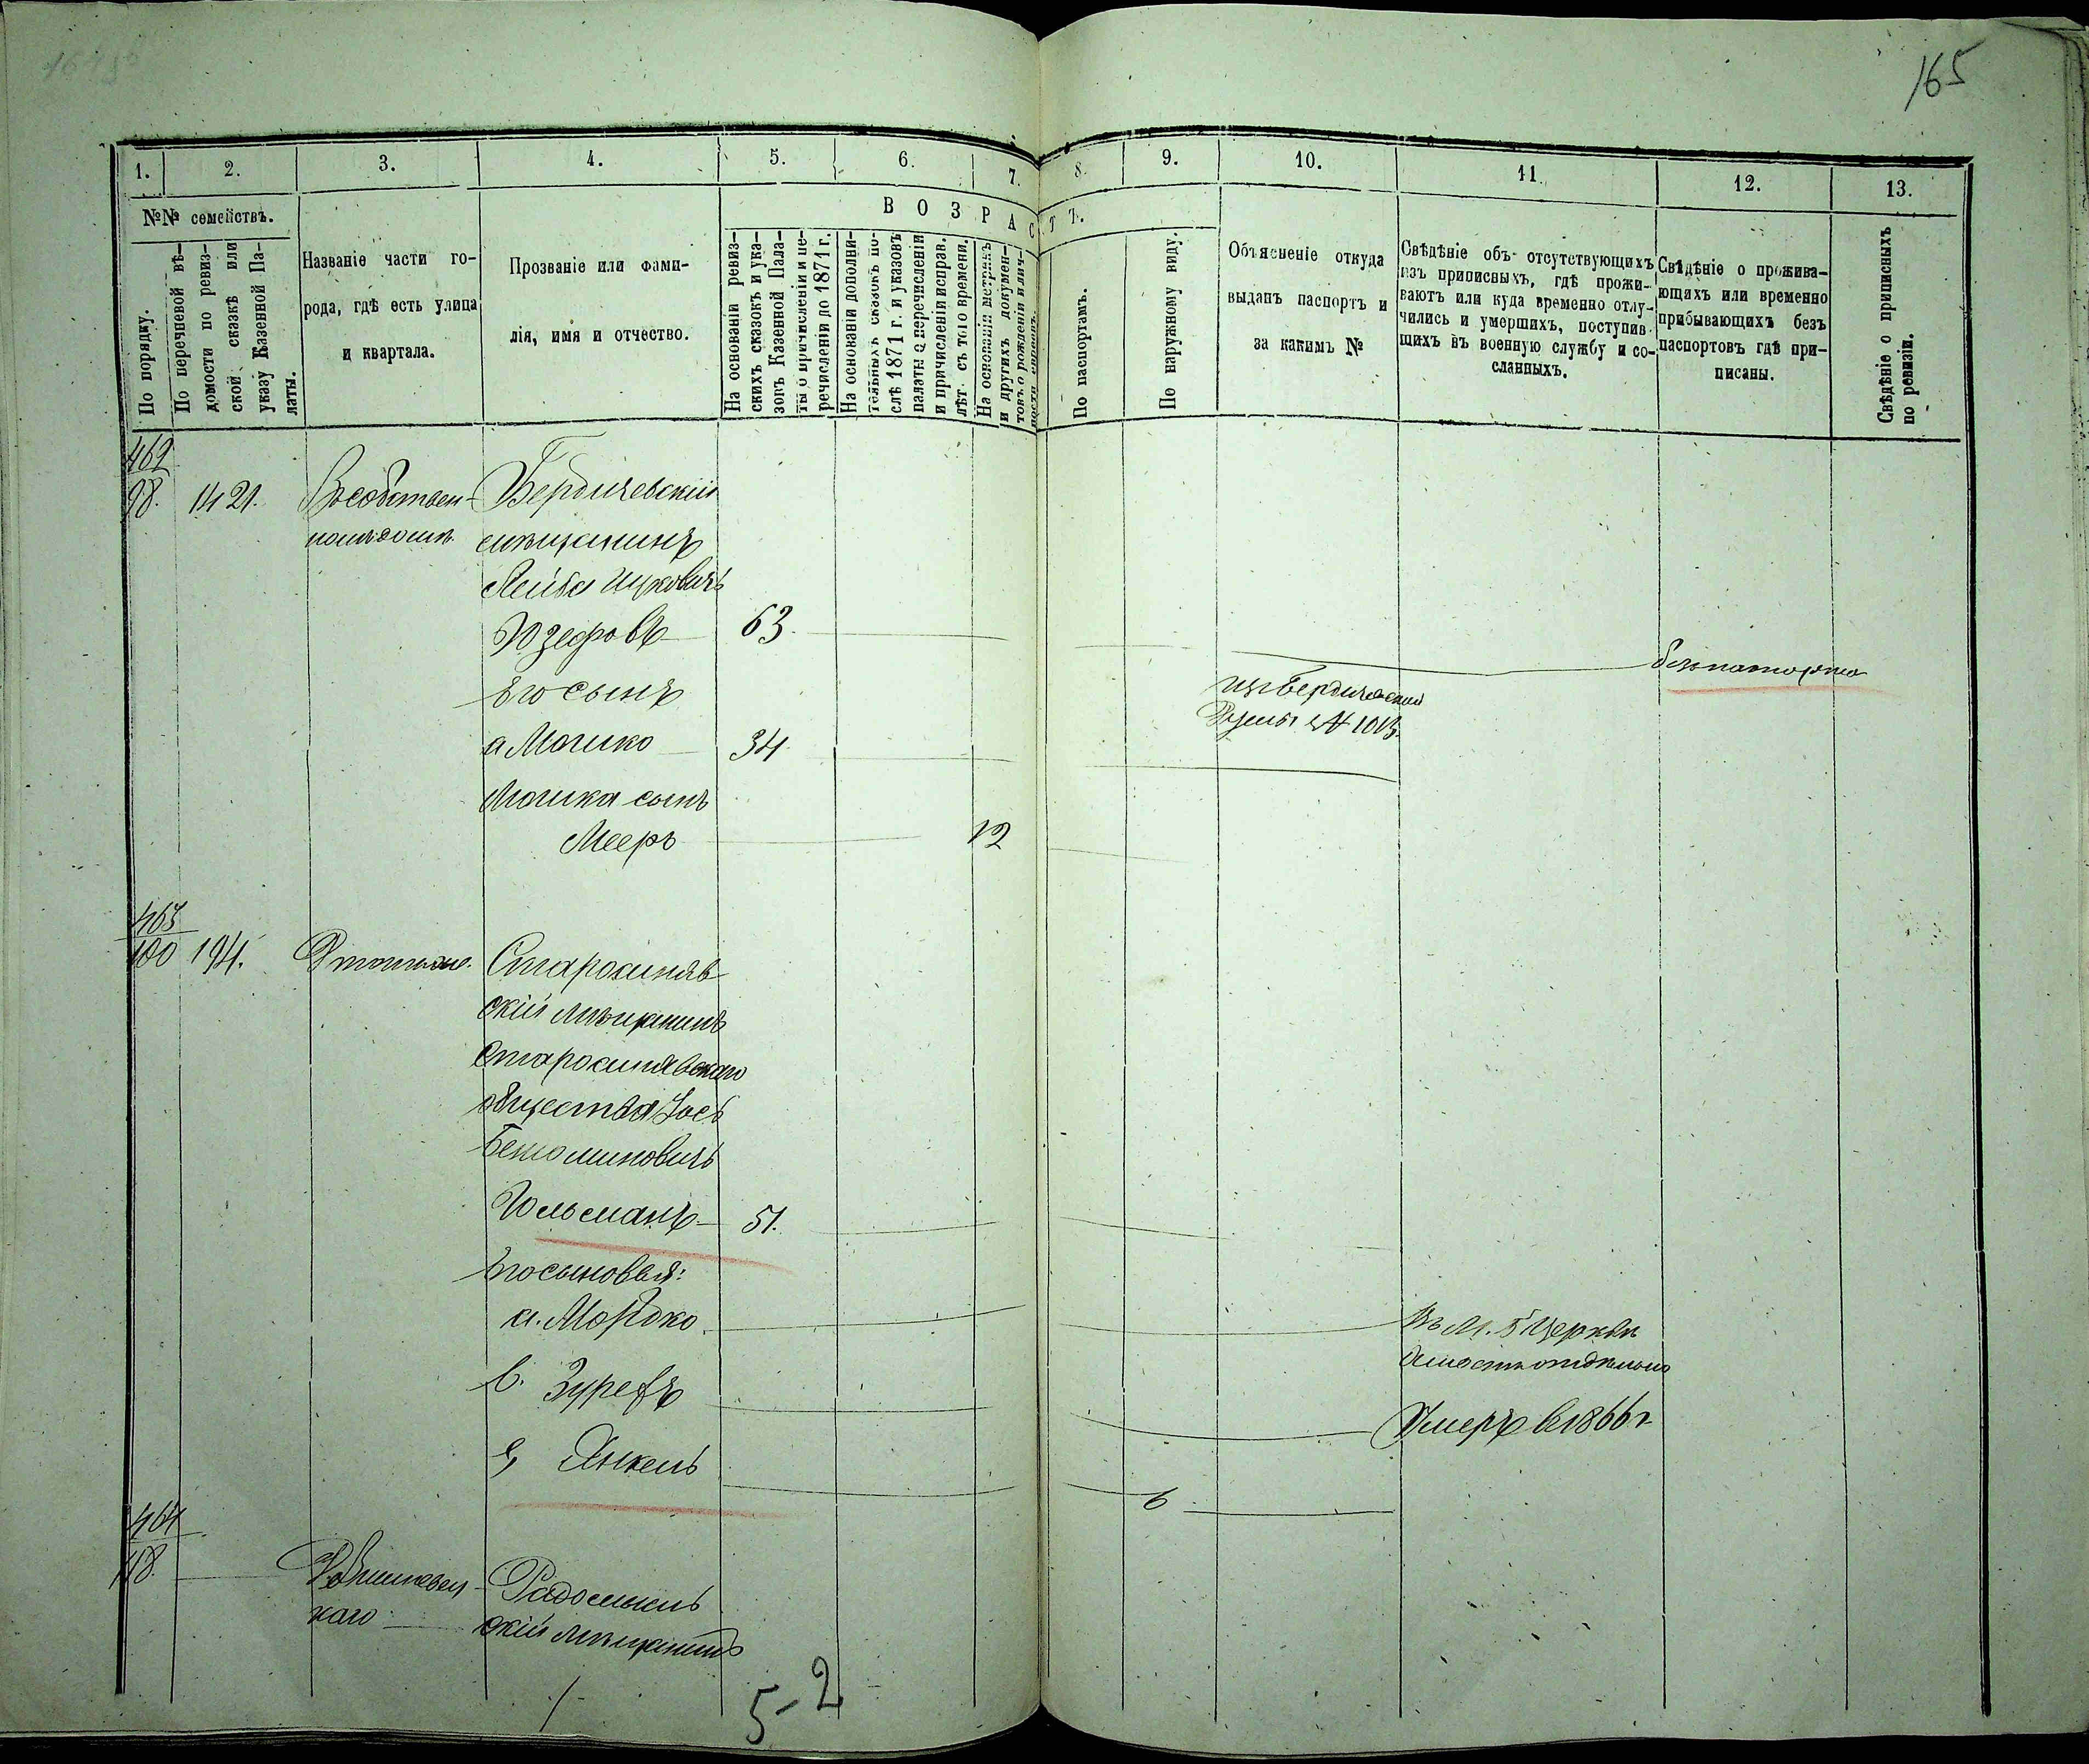 165
1.
2.
3.
4.
5.
6.
7.
8.
9.
10.
11.
12.
13.
№№ семействъ.
По порядку.
По перечневой вѣ-
домости по ревиз-
ской сказкѣ или
указу Казенной Па-
латы.
Названіе части го-
рода, гдѣ есть улица
и квартала.
Прозваніе или фами-
лія, имя и отчество.
ВОЗРАСТЪ.
На основаніи ревиз-
скихъ сказокъ и ука-
зокъ Казенной Пала-
ты о причисленіи и пе-
речисленіи до 1871 г.
На основаніи дополни-
тельныхъ сказокъ по-
слѣ 1871 г. и указовъ
палаты о перечисленіи
и причисленіи исправ.
лѣт. съ того времени.
На основаніи метрикъ
и другихъ докумен-
товъ о рожденіи и лич-
По паспортамъ.
По наружному виду.
Объясненіе откуда
выданъ паспортъ и
за какимъ №
Свѣдѣніе объ отсутствующихъ
изъ приписныхъ, гдѣ прожи-
ваютъ или куда временно отлу-
чились и умершихъ, поступив-
шихъ въ военную службу и со-
сланныхъ.
Свѣдѣніе о прожива-
ющихъ или временно
прибывающихъ безъ
паспортовъ гдѣ при-
писаны.
Свѣдѣніе о приписныхъ
по ревизіи.
462
98. 1421. Въ собствен-
номъ домѣ
Бердичевскій
мѣщанинъ
Лейба Ицковичъ
Юзефовъ 63.
безъ паспорта
Его сынъ
а Мошко 34
изъ Бердичевской
Думы № 1013.
Мошка сынъ
Мееръ 12
463
100 194.
Старосиняв-
скій мѣщанинъ
Старосинявскаго
общества Іось
Беньоминовичъ
Гольсманъ 51.
Его сыновья:
а. Мордко
въ М. Б Церкви
в. Зурехъ
Умеръ в 1866 г
Янкель
6
464
118.
Радомысль
скій мѣщанинъ
5-2